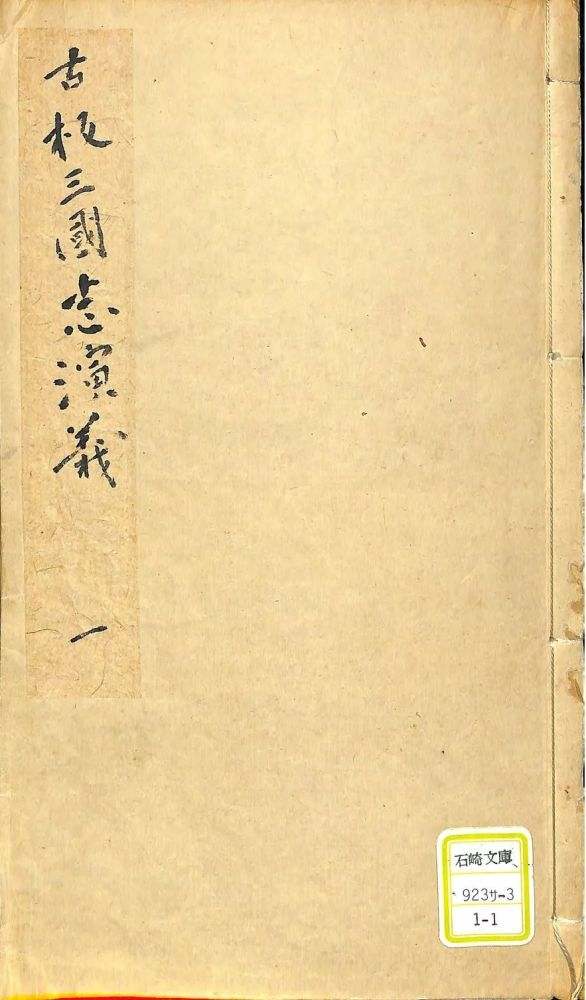 古板三國志演義
一
石崎文庫
923サ-3
1-1